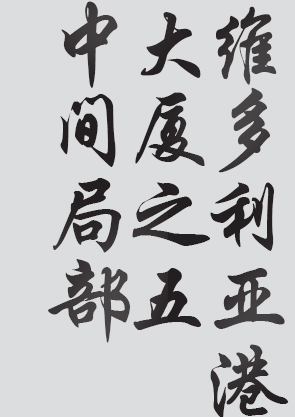 维多利亚港
大厦之五
中间局部